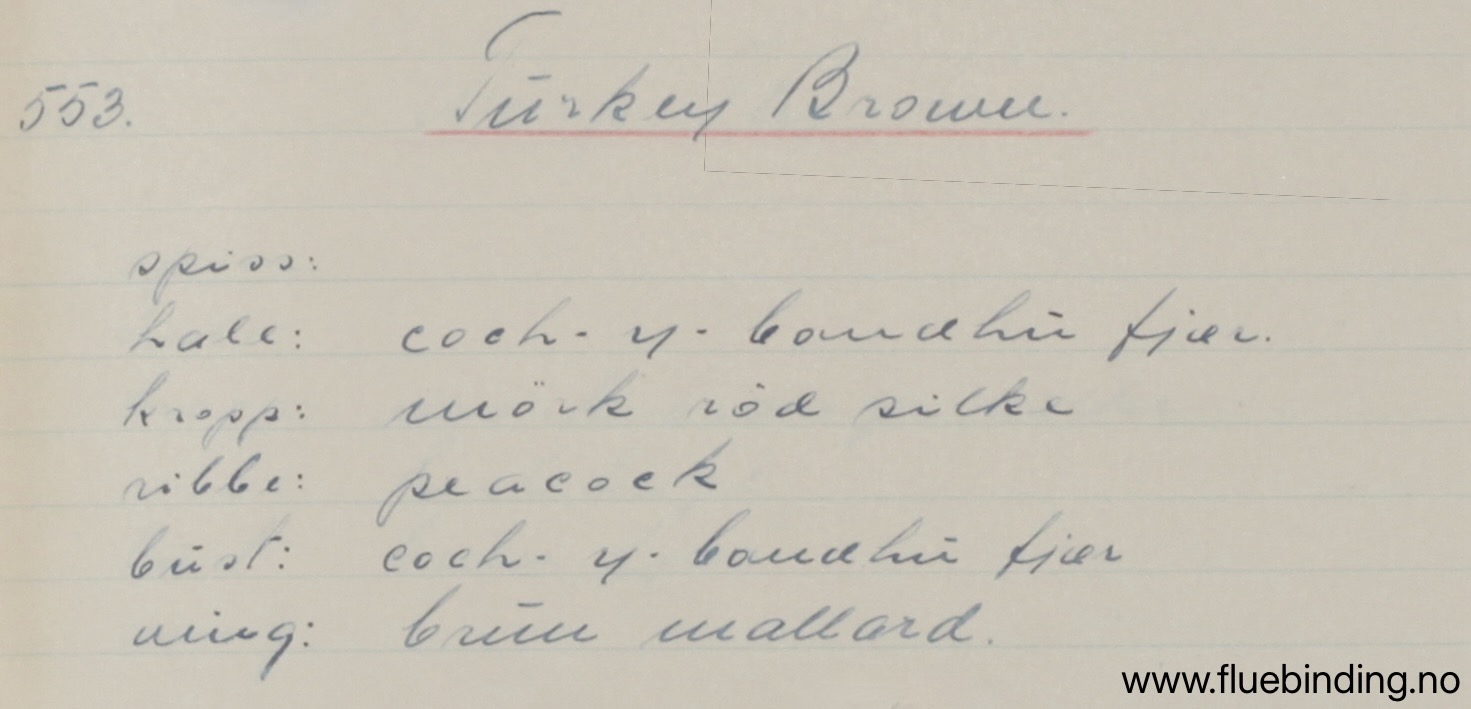 553. Turkey Brown.
spiss:
hale: coch-y-bondhu fjær.
kropp: mörk röd silke
ribbe: peacock
bust: coch-y-bondhu fjær
ving: brun mallard.
www.fluebinding.no